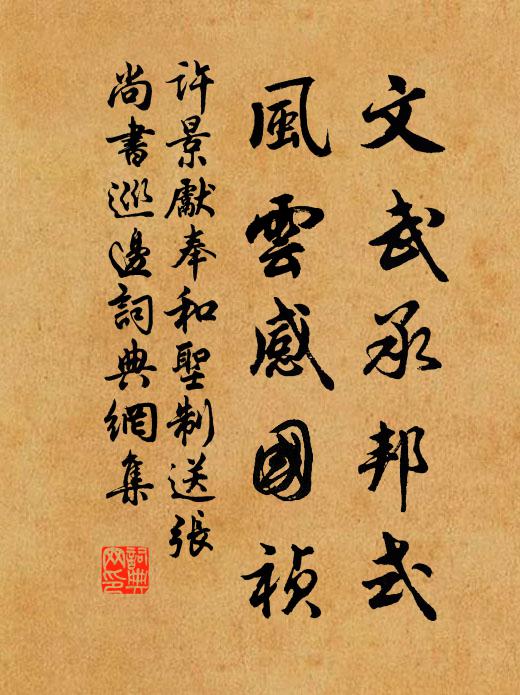 文武承邦式
風雲感國禎
許景獻奉和聖制送張
尚書巡邊詞典網集
詞典網印